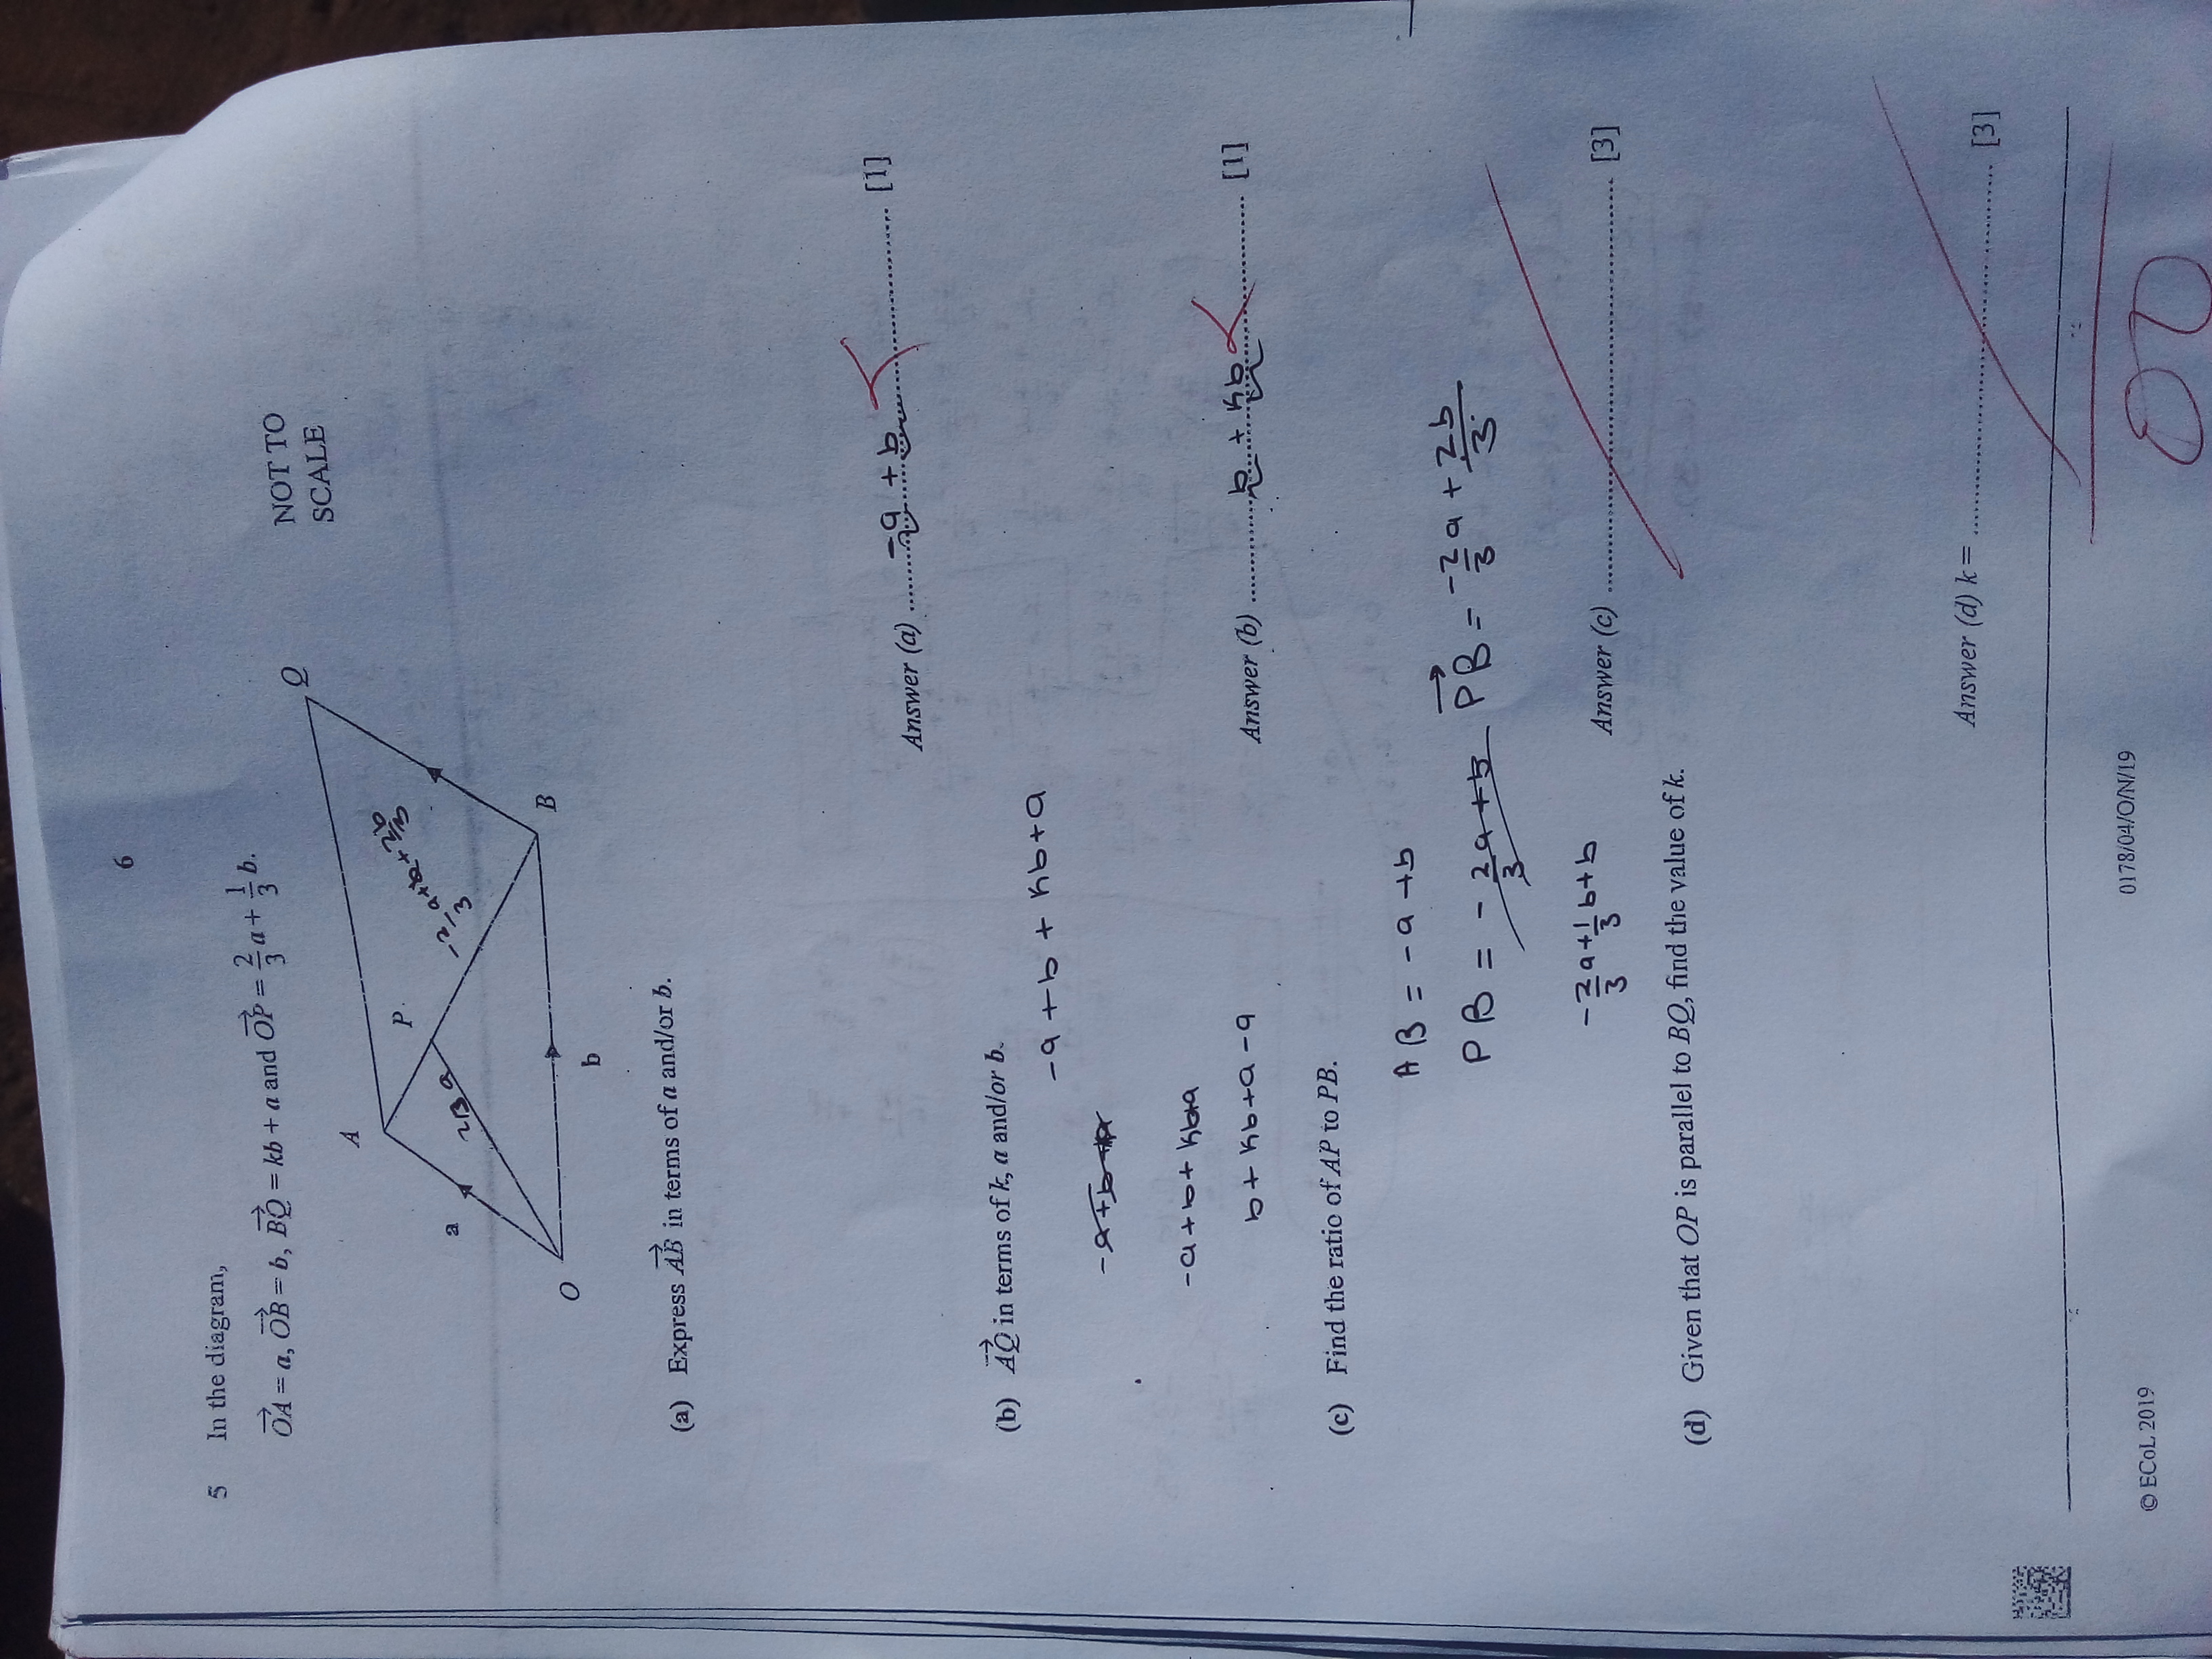 6
5 In the diagram,
OA = a, OB = b, BQ = kb + a and OP = 2/3 a + 1/3 b.
NOT TO
SCALE
Q
A
P
a
2/3 a
-2/3 a + b + 2b/3
O
B
b
(a) Express AB in terms of a and/or b.
Answer (a) -a + b [1]
(b) AQ in terms of k, a and/or b.
-a + b + kb + a
-a + b + kb+a
b + kb + a - a
Answer (b) b + kb [1]
(c) Find the ratio of AP to PB.
AB = -a + b
PB = -2/3 a + b PB = -2/3 a + 2b/3
-2/3 a + 1/3 b + b
Answer (c) [3]
(d) Given that OP is parallel to BQ, find the value of k.
Answer (d) k = [3]
© ECoL 2019
0178/04/O/N/19